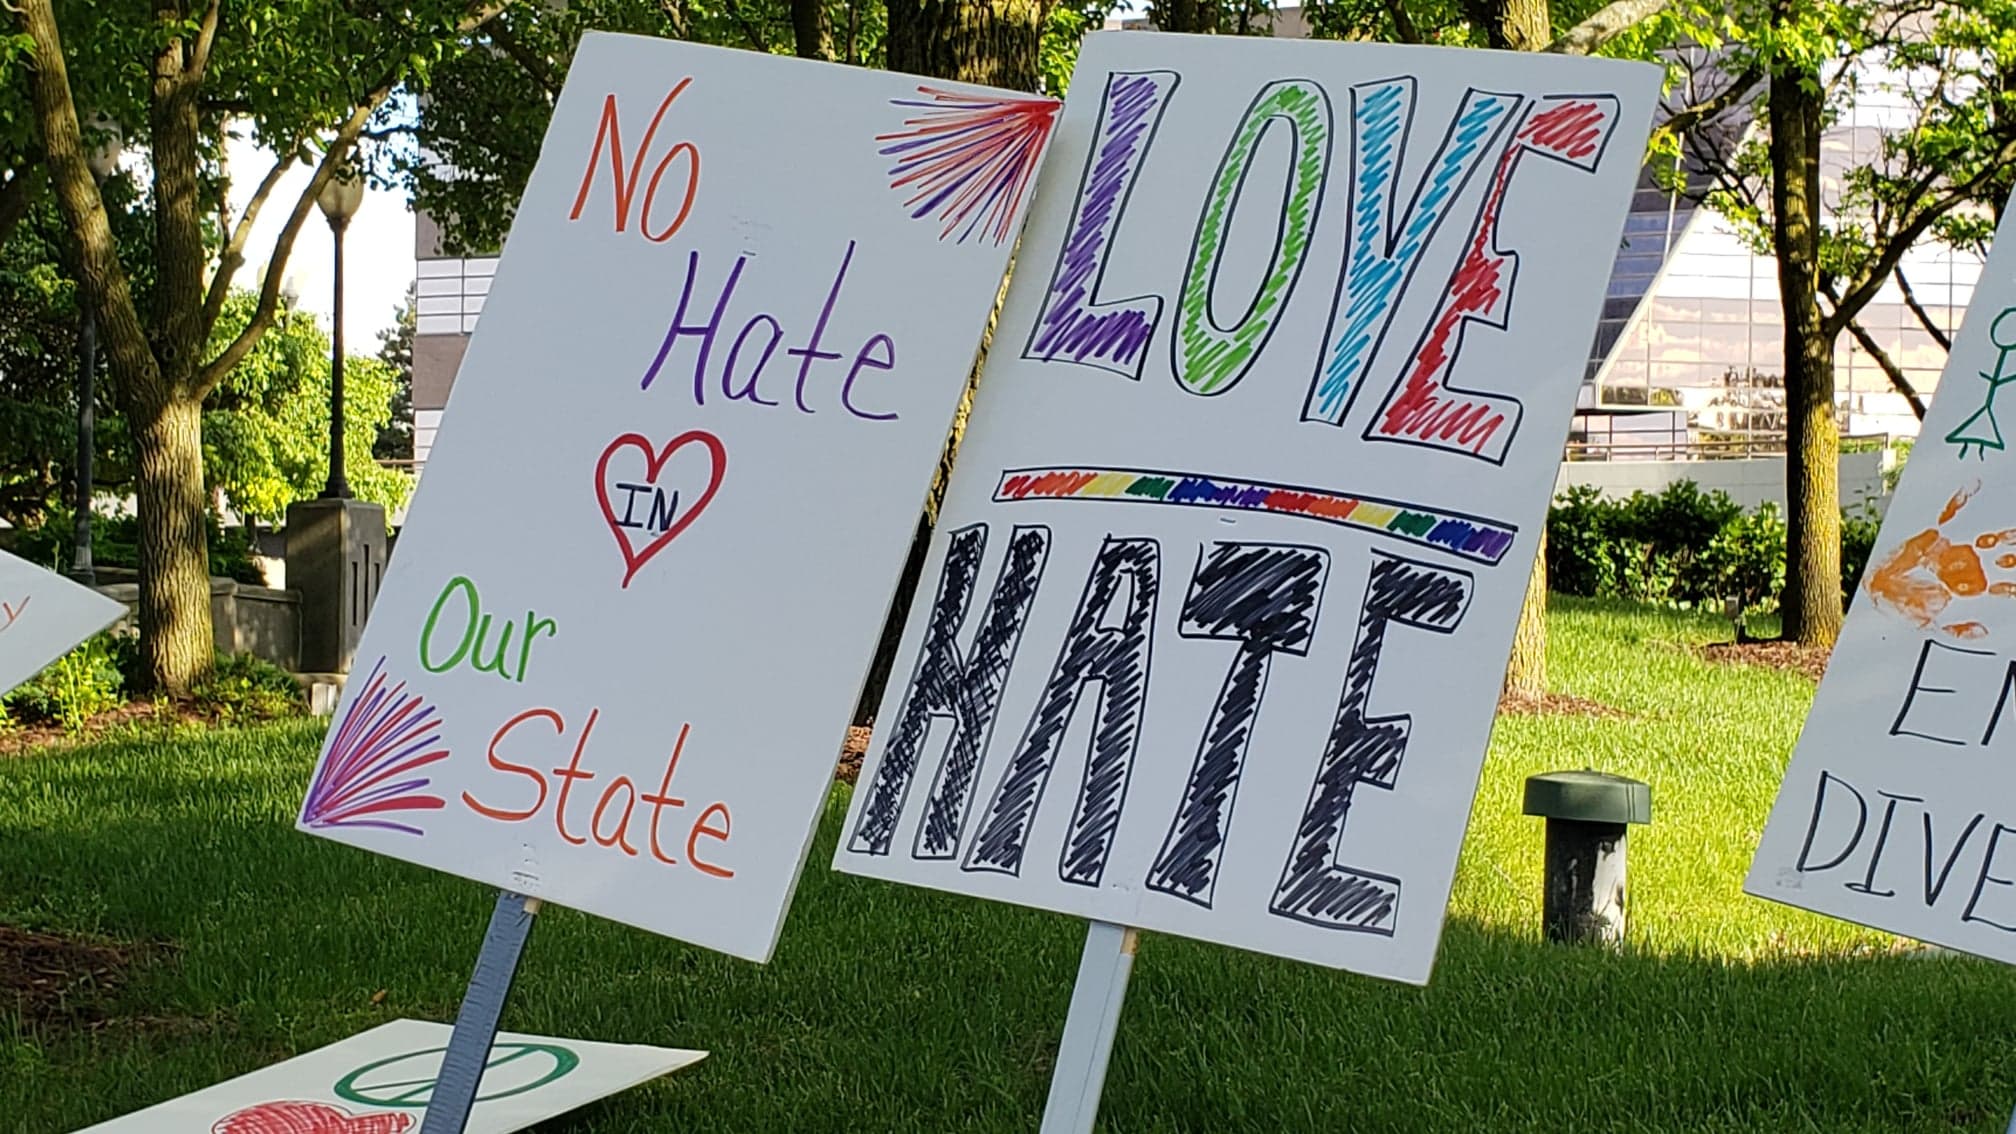 No
Hate
IN
Our
State
LOVE
HATE
y
EN
DIVE